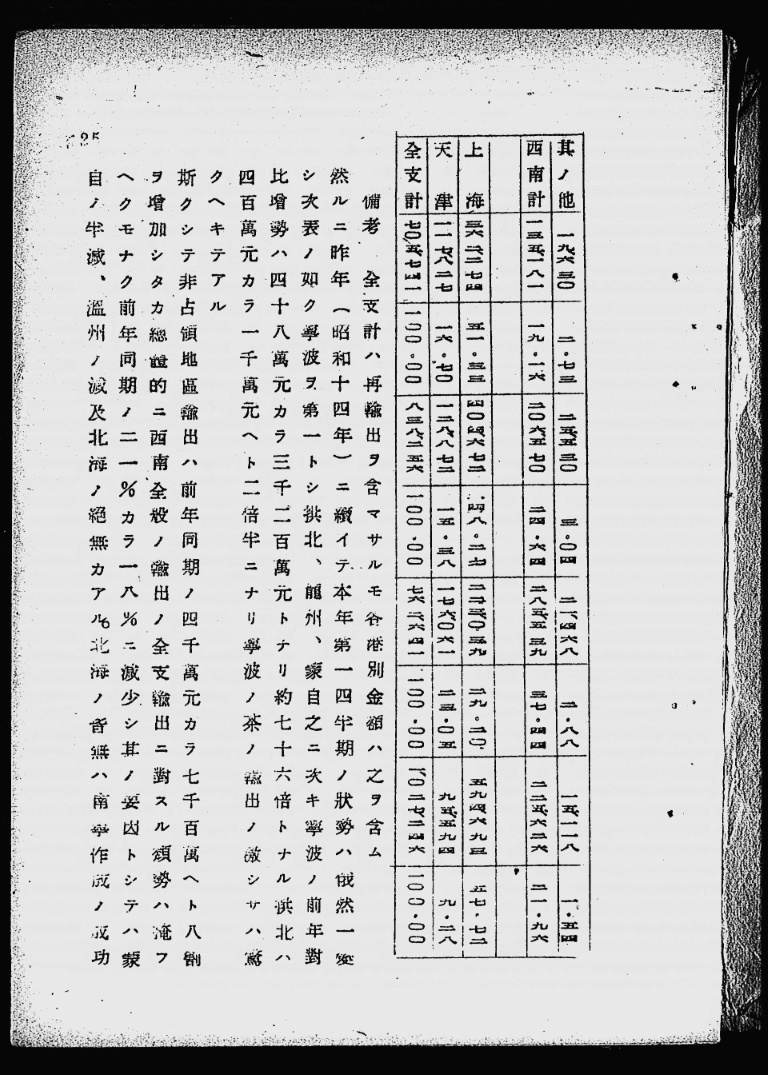 其ノ他 一九六三〇 二・七三 二五五三〇 三・〇四 二一、四六八 二・八八 一五、一一八 一・五四
西南計 一三五、一八一 一九・一六 二〇六五七〇 二四・六四 二八五、五三九 三七・四四 二二五、六二六 二一・九六
上海 三六二、二七四 五一・三三 四〇四六七二 四八・二七 二二三、〇三九 二九・二〇 五九四六九三 五七・七二
天津 一一七、八二七 一六・七〇 一二八、八七二 一五・三八 一七六〇六一 二三・〇五 九五、五九四 九・二八
全支計 七〇五、七四一 一〇〇・〇〇 八三八、二五六 一〇〇・〇〇 七六二六四一 一〇〇・〇〇 一、〇二七、二四六 一〇〇・〇〇
備考 全支計ハ再輸出ヲ含マサルモ各港別金額ハ之ヲ含ム
然ルニ昨年（昭和十四年）ニ續イテ本年第一四半期ノ狀勢ハ俄然一変
シ次表ノ如ク寧波ヲ第一トシ拱北、龍州、蒙自之ニ次キ寧波ノ前年對
比增勢ハ四十八萬元カラ三千二百萬元トナリ約七十六倍トナル拱北ハ
四百萬元カラ一千萬元ヘト二倍半ニナリ寧波ノ茶ノ輸出ノ激シサハ驚
クヘキテアル
斯クシテ非占領地區輸出ハ前年同期ノ四千萬元カラ七千百萬ヘト八割
ヲ增加シタカ總體的ニ西南全般ノ輸出ノ全支輸出ニ對スル頽勢ハ淹フ
ヘクモナク前年同期ノ二一％カラ一八％ニ減少シ其ノ要因トシテハ蒙
自ノ半減、溫州ノ減及北海ノ絕無カアル。北海ノ皆無ハ南寧作戰ノ成功
25